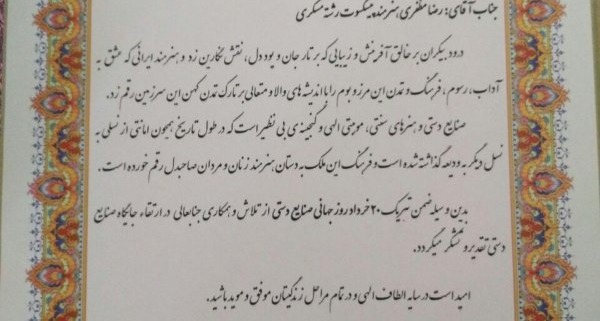 جناب آقای: رضا مظفری هنرمند پیشکسوت رشته مسگری
درود بیکران بر خالق آفرینش و زیبایی که بر تار جان و پود دل، نقش نگارین زد و هنرمند ایرانی که عشق به
آداب، رسوم، فرهنگ و تمدن این مرز و بوم را با اندیشه های والا و متعالی بر تارک تمدن کهن این سرزمین رقم زد.
صنایع دستی و هنرهای سنتی، موهبتی الهی و گنجینه ی بی نظیر است که در طول تاریخ همچون امانتی از نسلی به
نسل دیگر به ودیعه گذاشته شده است و فرهنگ این ملک به دستان هنرمند زنان و مردان صاحبدل رقم خورده است.
بدین وسیله ضمن تبریک ۲۰ خرداد روز جهانی صنایع دستی از تلاش و همکاری جنابعالی در ارتقاء جایگاه صنایع
دستی تقدیر و تشکر میگردد.
امید است در سایه الطاف الهی و در تمام مراحل زندگیتان موفق و موید باشید.